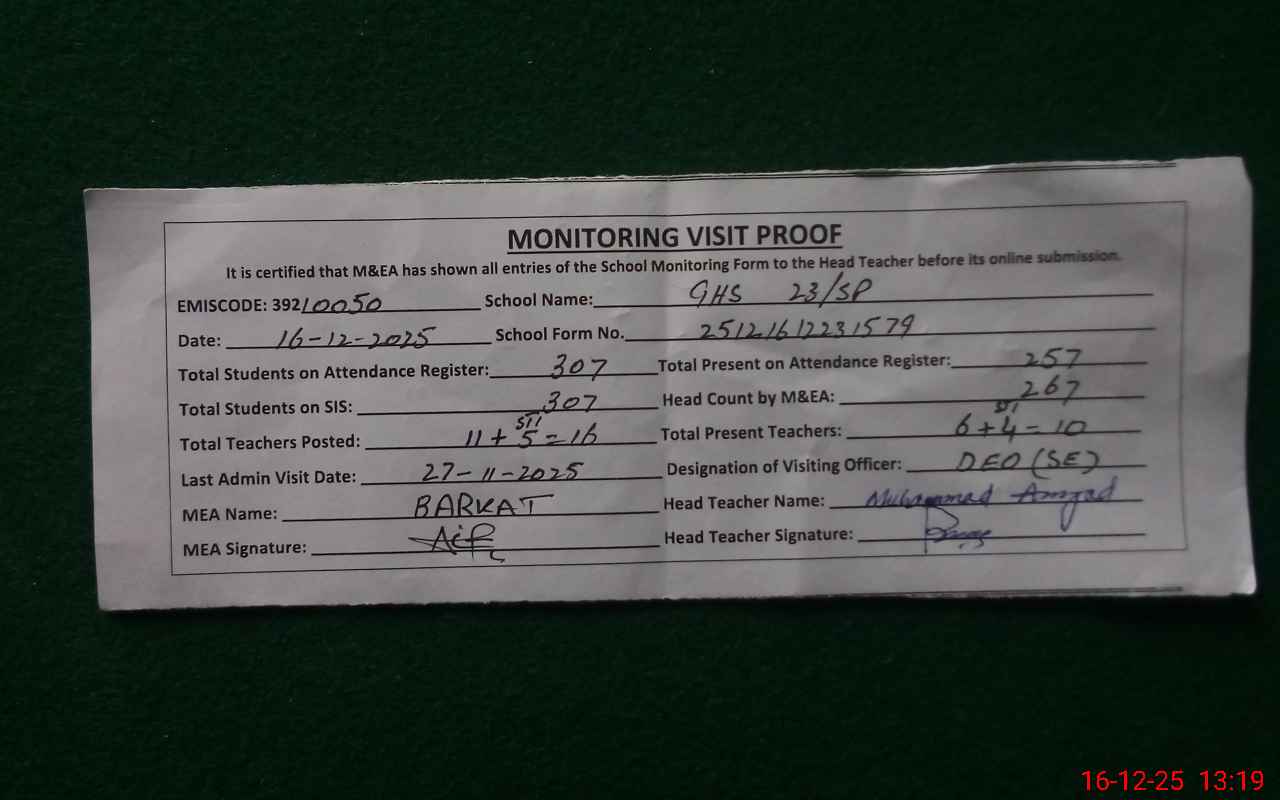 MONITORING VISIT PROOF
It is certified that M&EA has shown all entries of the School Monitoring Form to the Head Teacher before its online submission.
EMISCODE: 39210050 School Name: GHS 23/SP
Date: 16-12-2025 School Form No. 25121612231579
Total Students on Attendance Register: 307 Total Present on Attendance Register: 257
Total Students on SIS: 307 Head Count by M&EA: 267
STI STI
Total Teachers Posted: 11 + 5 = 16 Total Present Teachers: 6 + 4 = 10
Last Admin Visit Date: 27-11-2025 Designation of Visiting Officer: DEO (SE)
MEA Name: BARKAT Head Teacher Name: Muhammad Amjad
MEA Signature: Head Teacher Signature:
16-12-25 13:19